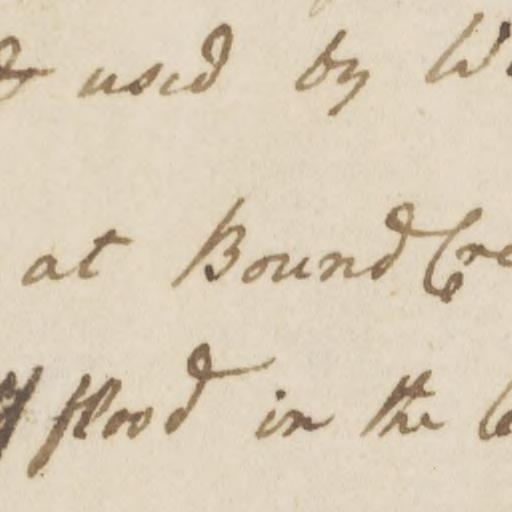 used by
at Bound Cre
flood in the